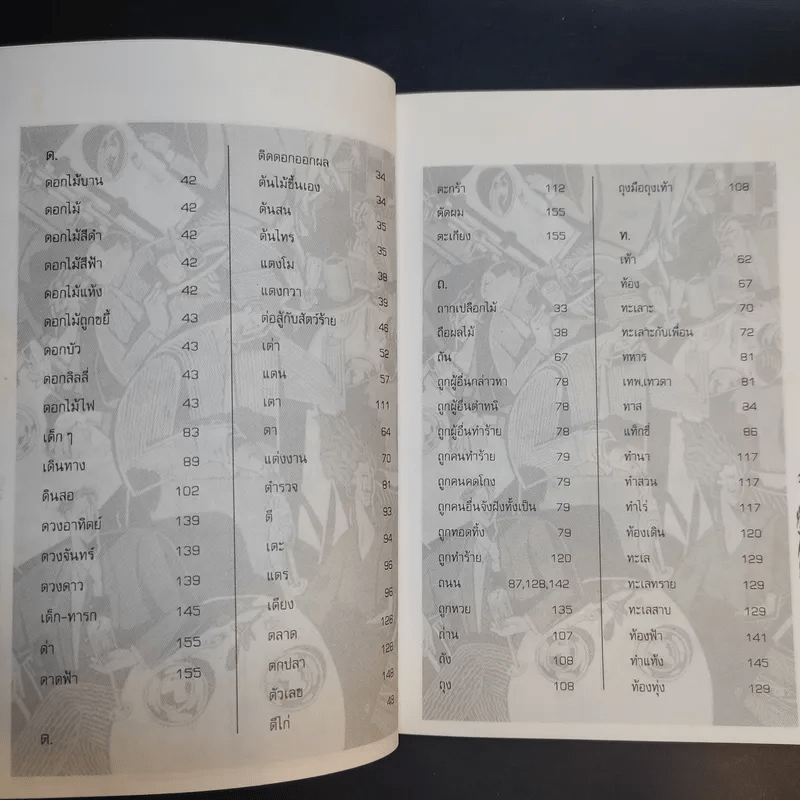 ด.
ดอกไม้บาน 42
ดอกไม้ 42
ดอกไม้สีดำ 42
ดอกไม้สีฟ้า 42
ดอกไม้แห้ง 42
ดอกไม้ถูกขยี้ 43
ดอกบัว 43
ดอกลิลลี่ 43
ดอกไม้ไฟ 43
เด็ก ๆ 83
เดินทาง 89
ดินสอ 102
ดวงอาทิตย์ 139
ดวงจันทร์ 139
ดวงดาว 139
เด็ก-ทารก 145
ด่า 155
ดาดฟ้า 155
ต.
ติดดอกออกผล 34
ต้นไม้ขึ้นเอง 34
ต้นสน 35
ต้นไทร 35
แตงโม 38
แตงกวา 39
ต่อสู้กับสัตว์ร้าย 46
เต่า 52
แตน 57
เตา 111
ตา 64
แต่งงาน 70
ตำรวจ 81
ตี 93
เตะ 94
แตร 96
เตียง 96
ตลาด 126
ตกปลา 128
ตัวเลข 148
ตีไก่ 49
ตะกร้า 112
ตัดผม 155
ตะเกียง 155
ถ.
ถากเปลือกไม้ 33
ถือผลไม้ 38
ถัน 67
ถูกผู้อื่นกล่าวหา 78
ถูกผู้อื่นตำหนิ 78
ถูกผู้อื่นทำร้าย 78
ถูกคนทำร้าย 79
ถูกคนคดโกง 79
ถูกคนอื่นจังฝังทั้งเป็น 79
ถูกทอดทิ้ง 79
ถูกทำร้าย 120
ถนน 87,128,142
ถูกหวย 135
ถ่าน 107
ถัง 108
ถุง 108
ถุงมือถุงเท้า 108
ท.
เท้า 62
ท้อง 67
ทะเลาะ 70
ทะเลาะกับเพื่อน 72
ทหาร 81
เทพ,เทวดา 81
ทาส 84
แท็กซี่ 86
ทำนา 117
ทำสวน 117
ทำไร่ 117
ท้องเดิน 120
ทะเล 129
ทะเลทราย 129
ทะเลสาบ 129
ท้องฟ้า 141
ทำแท้ง 145
ท้องทุ่ง 129